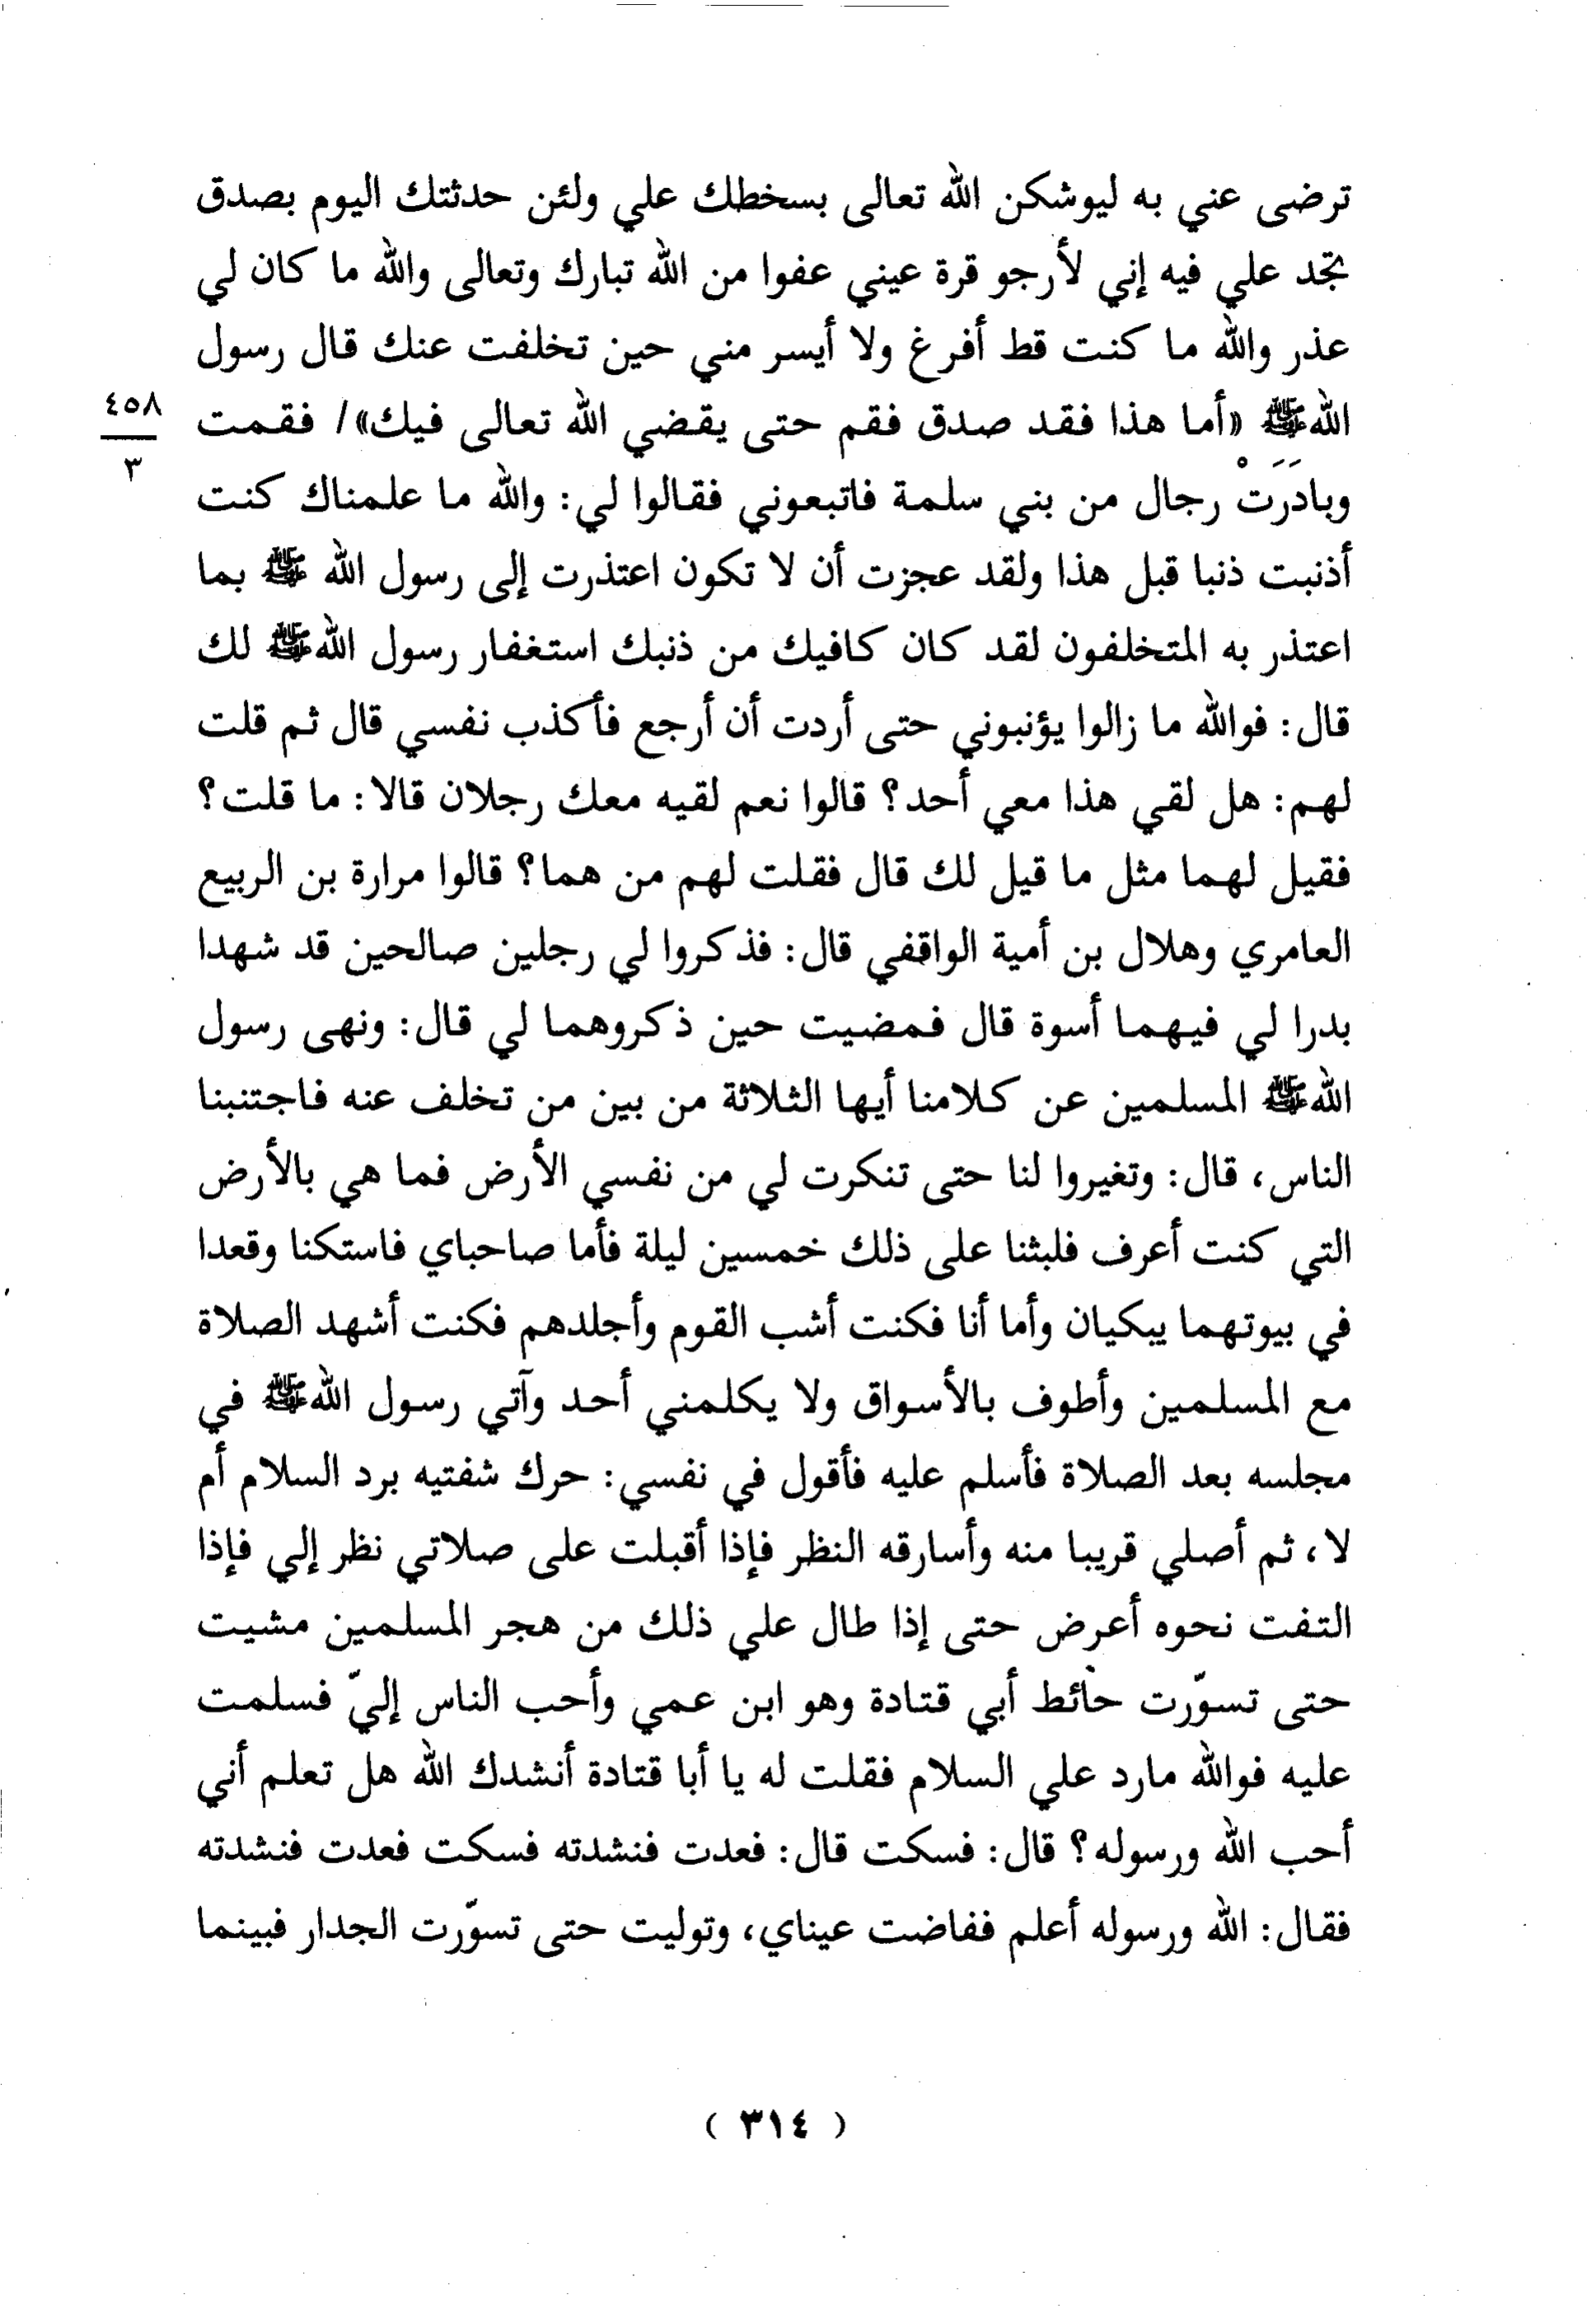 ترضى عني به ليوشكن الله تعالى بسخطك علي ولئن حدثتك اليوم بصدق
تجد علي فيه إني لأرجو قرة عيني عفوا من الله تبارك وتعالى والله ما كان لي
عذر والله ما كنت قط أفرغ ولا أيسر مني حين تخلفت عنك قال رسول
الله ﷺ «أما هذا فقد صدق فقم حتى يقضي الله تعالى فيك»/ فقمت
٤٥٨
٣
وبادَرَتْ رجال من بني سلمة فاتبعوني فقالوا لي: والله ما علمناك كنت
أذنبت ذنبا قبل هذا ولقد عجزت أن لا تكون اعتذرت إلى رسول الله ﷺ بما
اعتذر به المتخلفون لقد كان كافيك من ذنبك استغفار رسول الله ﷺ لك
قال: فوالله ما زالوا يؤنبوني حتى أردت أن أرجع فأكذب نفسي قال ثم قلت
لهم: هل لقي هذا معي أحد؟ قالوا نعم لقيه معك رجلان قالا: ما قلت؟
فقيل لهما مثل ما قيل لك قال فقلت لهم من هما؟ قالوا مرارة بن الربيع
العامري وهلال بن أمية الواقفي قال: فذكروا لي رجلين صالحين قد شهدا
بدرا لي فيهما أسوة قال فمضيت حين ذكروهما لي قال: ونهى رسول
الله ﷺ المسلمين عن كلامنا أيها الثلاثة من بين من تخلف عنه فاجتنبنا
الناس، قال: وتغيروا لنا حتى تنكرت لي من نفسي الأرض فما هي بالأرض
التي كنت أعرف فلبثنا على ذلك خمسين ليلة فأما صاحباي فاستكنا وقعدا
في بيوتهما يبكيان وأما أنا فكنت أشب القوم وأجلدهم فكنت أشهد الصلاة
مع المسلمين وأطوف بالأسواق ولا يكلمني أحد وآتي رسول الله ﷺ في
مجلسه بعد الصلاة فأسلم عليه فأقول في نفسي: حرك شفتيه برد السلام أم
لا، ثم أصلي قريبا منه وأسارقه النظر فإذا أقبلت على صلاتي نظر إلي فإذا
التفت نحوه أعرض حتى إذا طال علي ذلك من هجر المسلمين مشيت
حتى تسوّرت حائط أبي قتادة وهو ابن عمي وأحب الناس إليّ فسلمت
عليه فوالله مارد علي السلام فقلت له يا أبا قتادة أنشدك الله هل تعلم أني
أحب الله ورسوله؟ قال: فسكت قال: فعدت فنشدته فسكت فعدت فنشدته
فقال: الله ورسوله أعلم ففاضت عيناي، وتوليت حتى تسوّرت الجدار فبينما
( ٣١٤ )